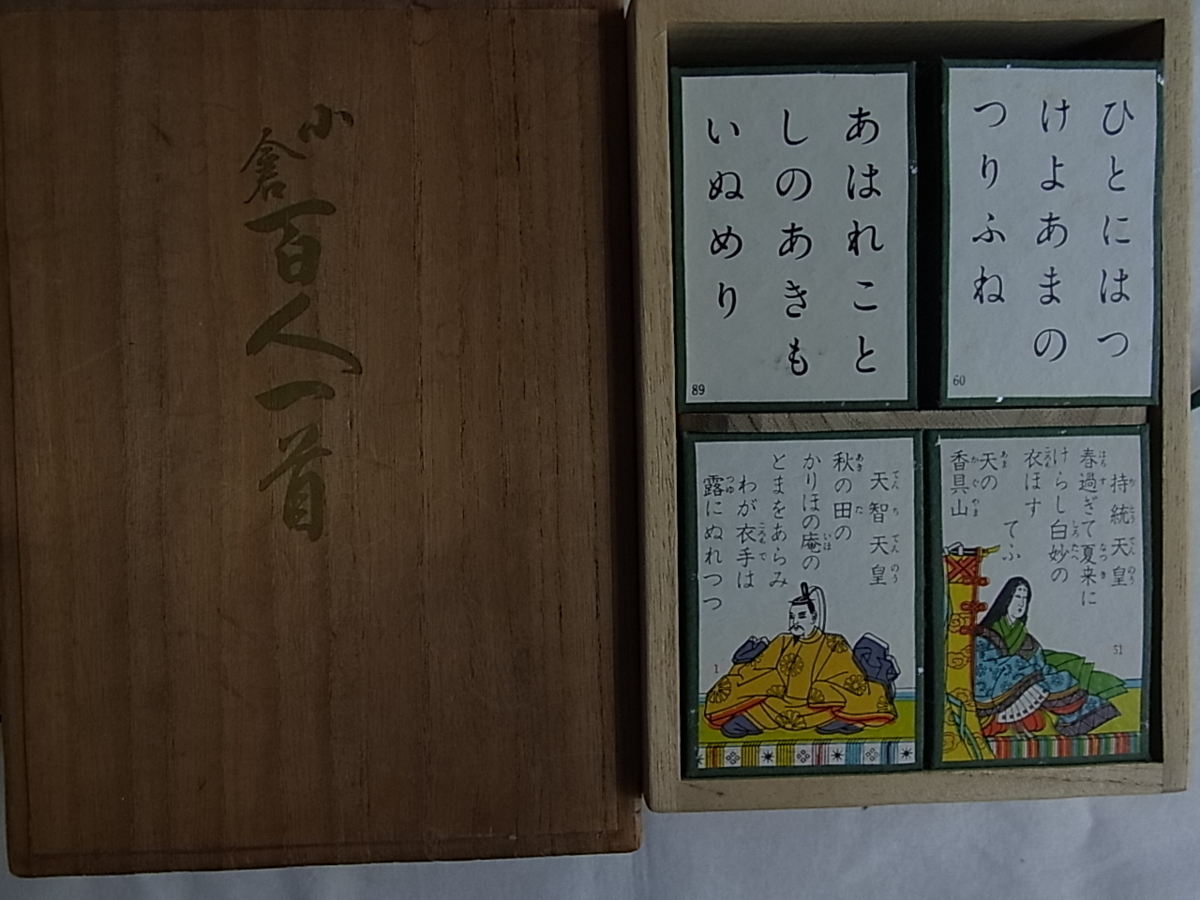 小倉百人一首
ひとにはつ
けよあまの
つりふね
60
あはれこと
しのあきも
いぬめり
89
持統天皇
春過ぎて夏来に
けらし白妙の
衣ほす
てふ
天の
香具山
51
天智天皇
秋の田の
かりほの庵の
とまをあらみ
わが衣手は
露にぬれつつ
1